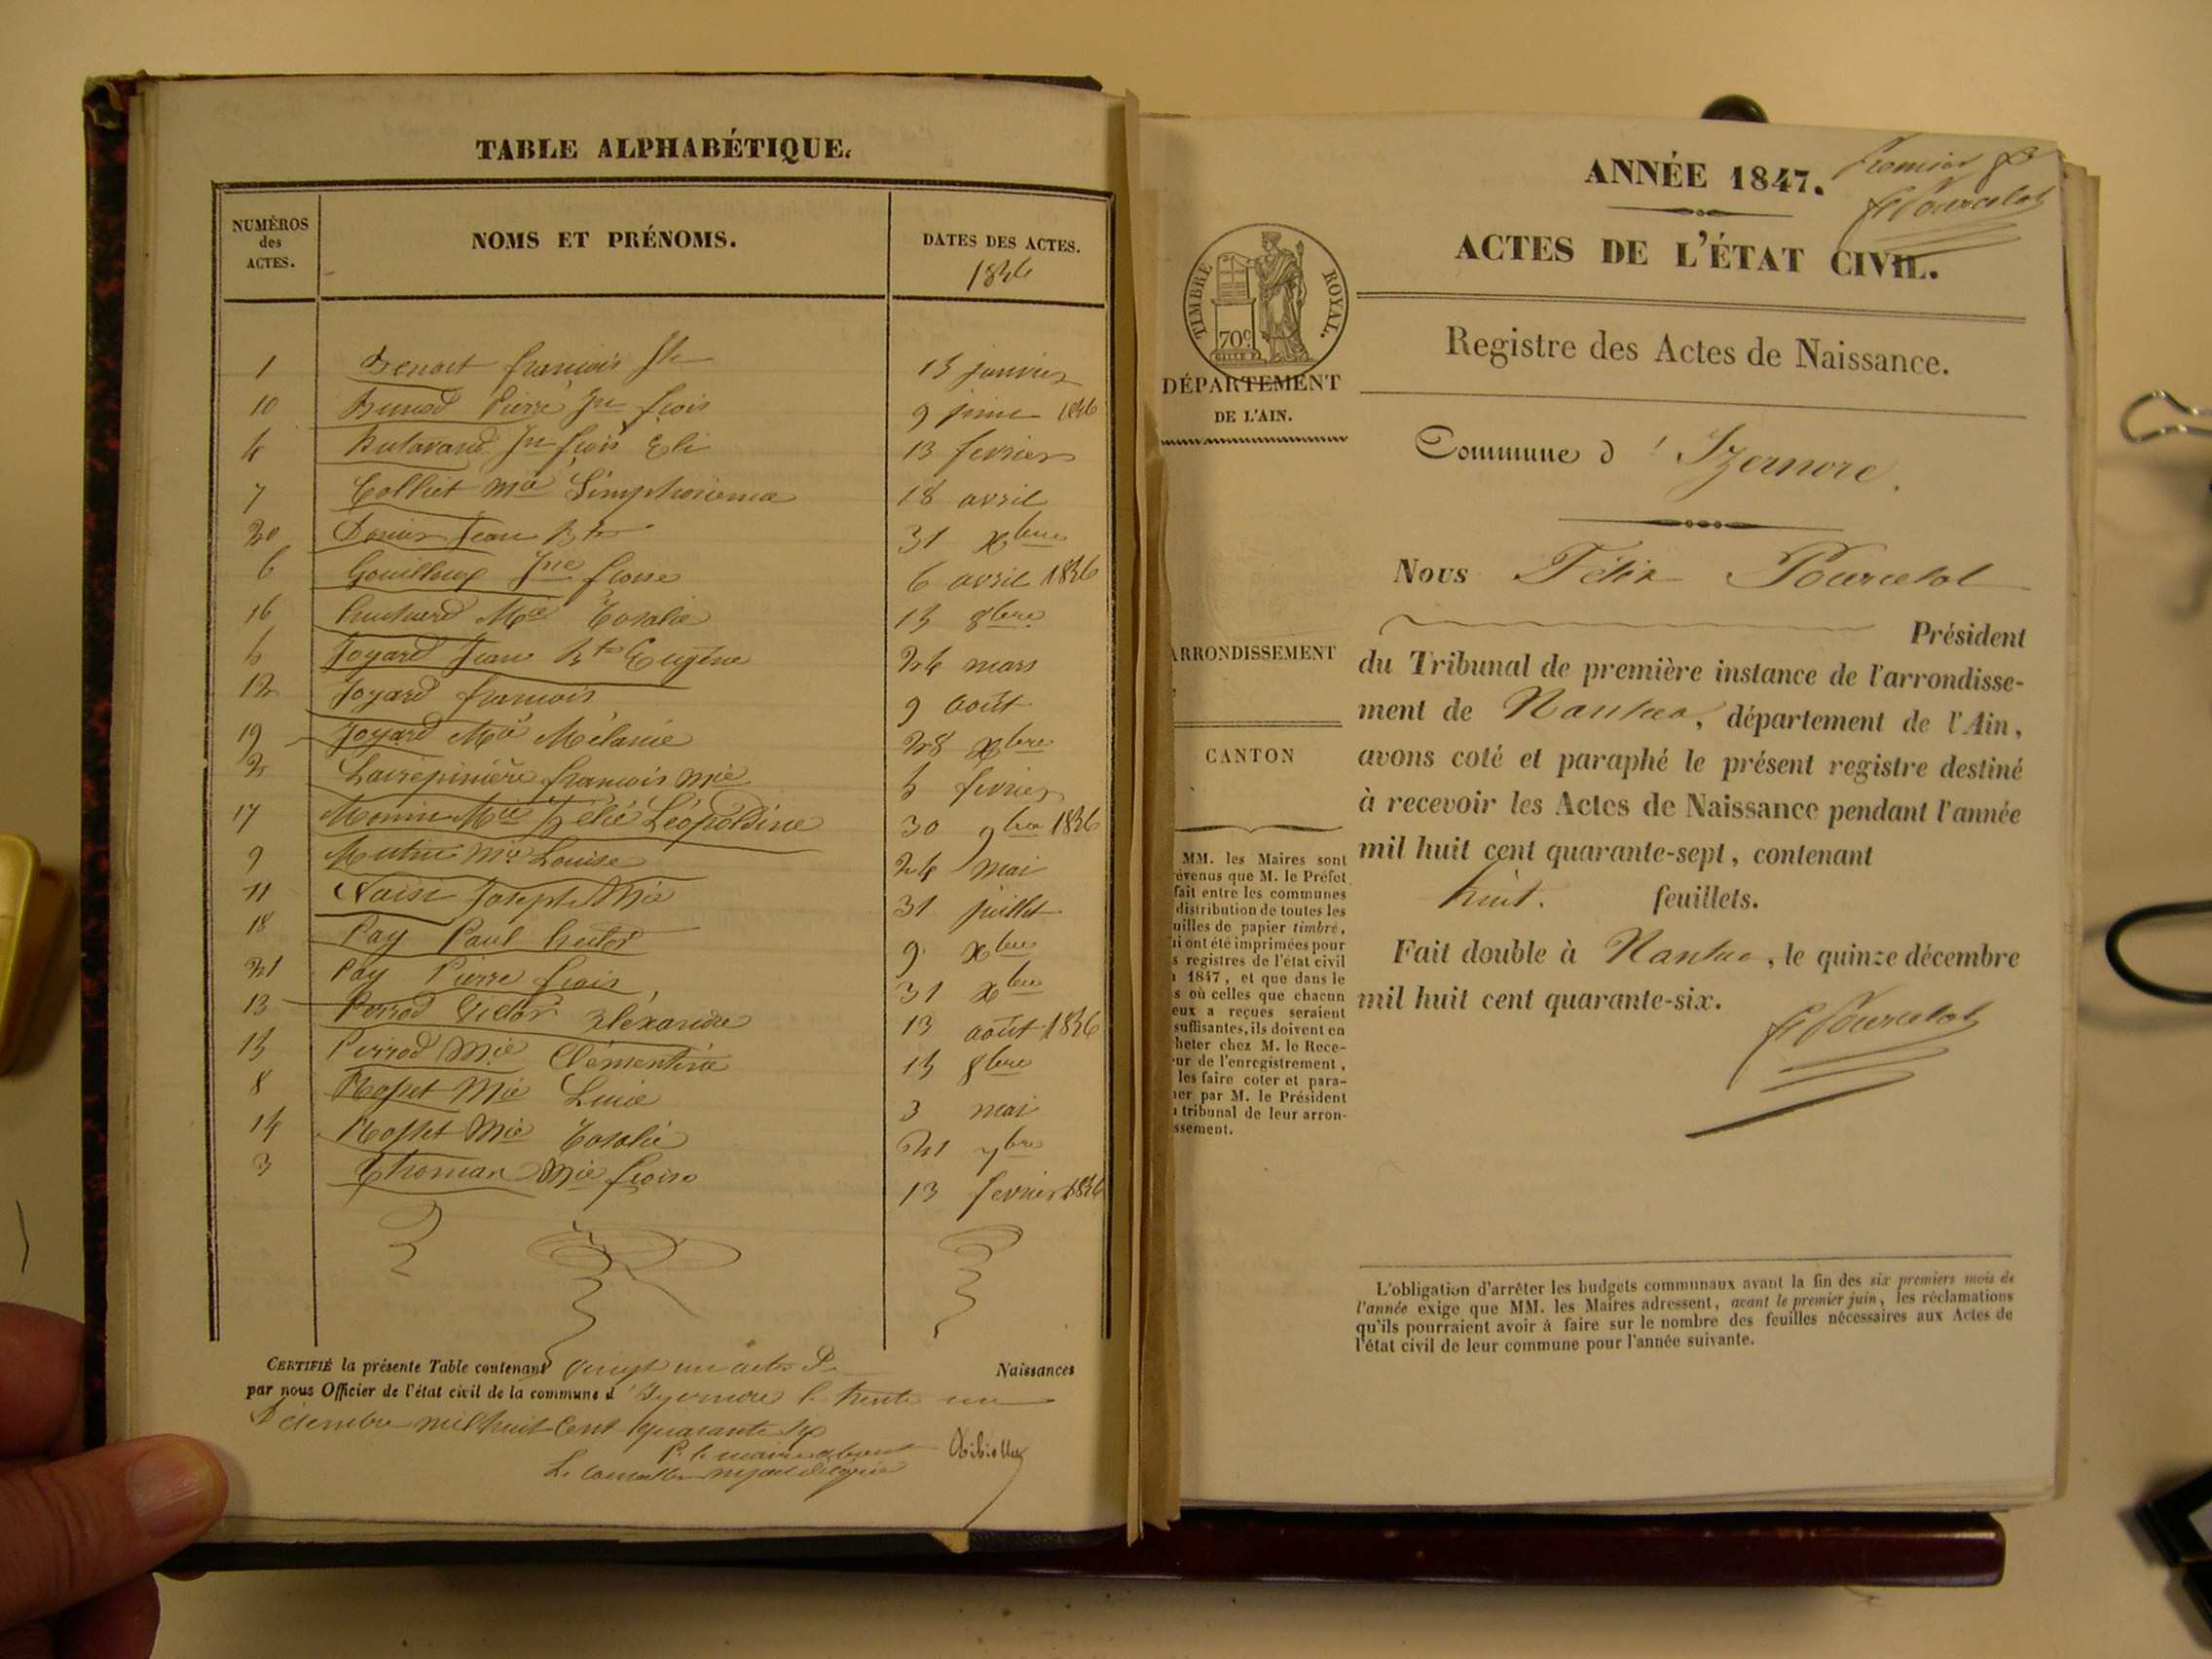 TABLE ALPHABÉTIQUE.
NUMÉROS des ACTES.
NOMS ET PRÉNOMS.
DATES DES ACTES.
1846
1 Benoit françois 15 janvier
10 Pierre Jn fçois 9 juin 1846
4 Jn fçois Eli 13 fevrier
7 Colliet Mie Simphorienne 18 avril
20 Jean Bte 31 Xbre
6 Gouilloux Jne fçoise 6 avril 1846
16 Mie Rosalie 15 8bre
5 Joyard Jean Bte Eugène 24 mars
12 Joyard francois 9 août
19 Joyard Mie Mélanie 28 Xbre
2 francois Mie 5 fevrier
17 Monin Mie Zélie Léopoldine 30 9bre 1846
9 Mutin Mie Louise 24 mai
11 Joseph Mie 31 juillet
18 Pay Paul hector 9 Xbre
21 Pay Pierre fçois 31 Xbre
13 Perrod Victor Alexandre 13 août 1846
15 Perrod Mie Clémentine 15 8bre
8 Rosset Mie Lucie 3 mai
14 Rosset Mie Rosalie 21 7bre
3 Mie fçoise 13 fevrier 1846
CERTIFIÉ la présente Table contenant vingt un actes De Naissances
par nous Officier de l'état civil de la commune d'Izernore le trente un
Décembre mil huit Cent quarante six
Pr le maire absent
Le municipal délégué
ANNÉE 1847.
Premier
F Pourcelot
ACTES DE L'ÉTAT CIVIL.
TIMBRE ROYAL.
70c
DÉPARTEMENT
DE L'AIN.
Registre des Actes de Naissance.
Commune d'Izernore.
Nous Félix Pourcelot
Président
ARRONDISSEMENT
du Tribunal de première instance de l'arrondisse-
ment de Nantua, département de l'Ain,
CANTON
avons coté et paraphé le présent registre destiné
à recevoir les Actes de Naissance pendant l'année
mil huit cent quarante-sept, contenant
huit. feuillets.
Fait double à Nantua, le quinze décembre
mil huit cent quarante-six.
F Pourcelot
MM. les Maires sont
évenus que M. le Préfet
fait entre les communes
distribution de toutes les
uilles de papier timbré,
ui ont été imprimées pour
s registres de l'état civil
1847, et que dans le
s où celles que chacun
eux a reçues seraient
suffisantes, ils doivent en
heter chez M. le Rece-
ur de l'enregistrement,
les faire coter et para-
er par M. le Président
tribunal de leur arron-
ssement.
L'obligation d'arrêter les budgets communaux avant la fin des six premiers mois de
l'année exige que MM. les Maires adressent, avant le premier juin, les réclamations
qu'ils pourraient avoir à faire sur le nombre des feuilles nécessaires aux Actes de
l'état civil de leur commune pour l'année suivante.